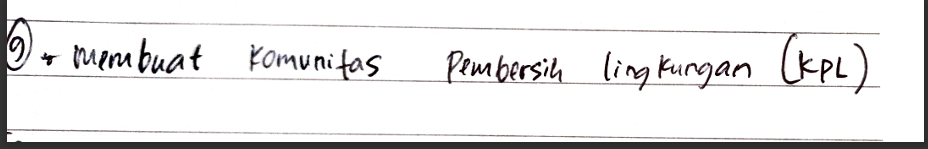 9. membuat komunitas Pembersih lingkungan (KPL)